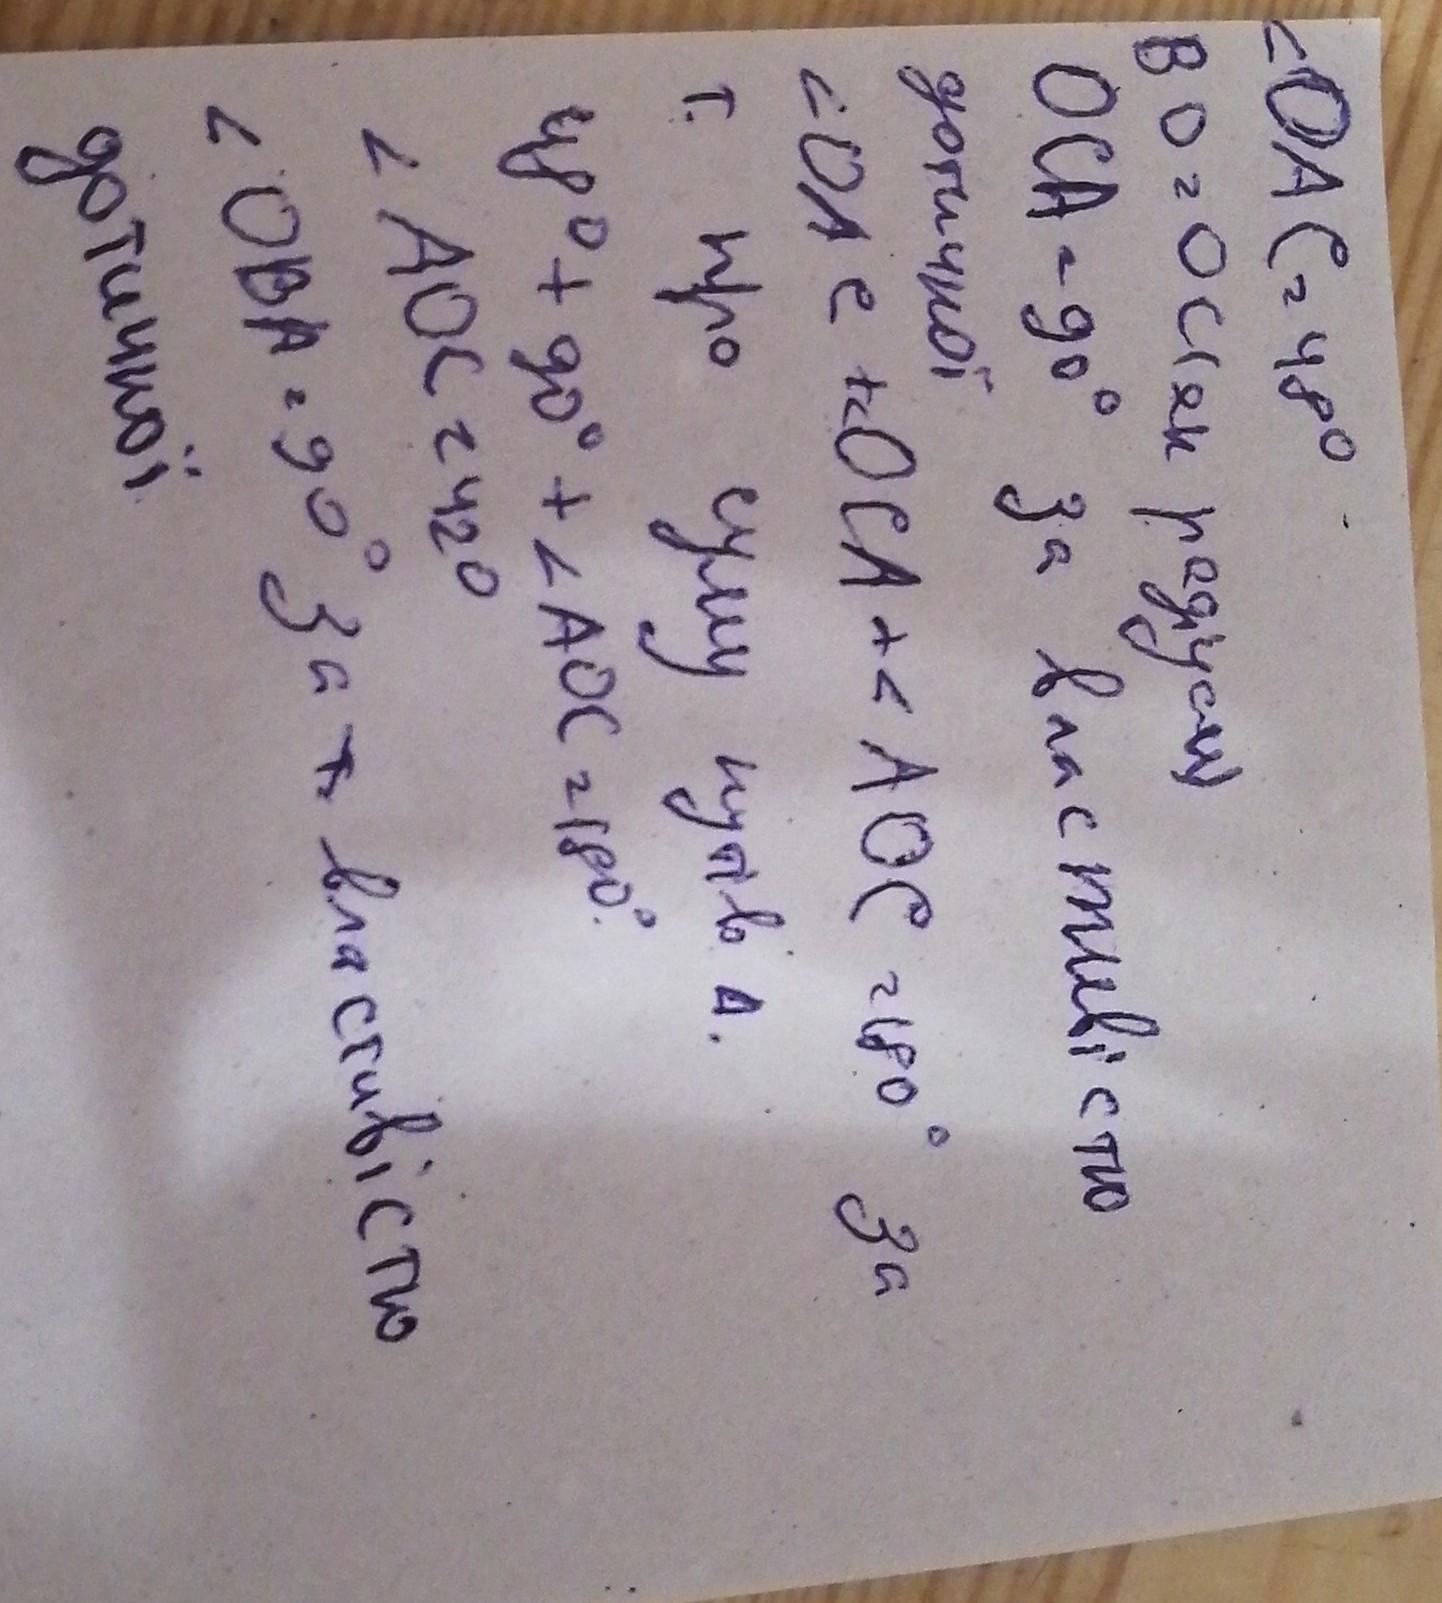 <OAC=48°
BO=OC(як радіуси)
OCA=90° за властивістю
дотичної
<OAC+<OCA+<AOC=180° за
т. про суму кутів Δ.
48°+90°+<AOC=180°.
<AOC=42°
<OBA=90° за властивістю
дотичної.